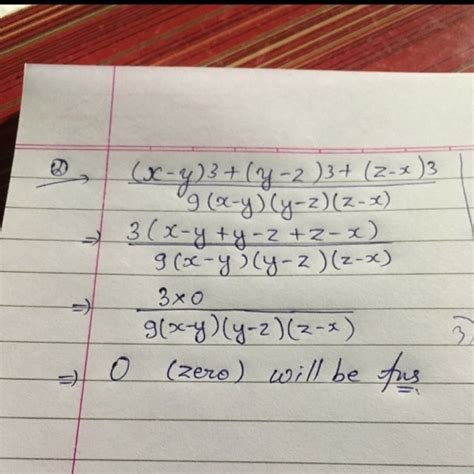 ② → (x-y)3+(y-z)3+(z-x)3
9(x-y)(y-z)(z-x)
⇒ 3(x-y+y-z+z-x)
9(x-y)(y-z)(z-x)
⇒ 3×0
9(x-y)(y-z)(z-x)
3)
⇒ 0 (zero) will be Ans.